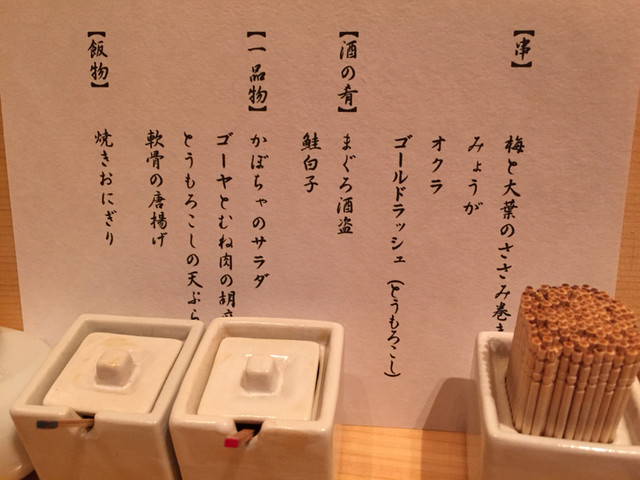 【串】
梅と大葉のささみ巻き
みょうが
オクラ
ゴールドラッシュ（とうもろこし）
【酒の肴】
まぐろ酒盗
鮭白子
【一品物】
かぼちゃのサラダ
ゴーヤとむね肉の胡
とうもろこしの天ぷら
軟骨の唐揚げ
【飯物】
焼きおにぎり